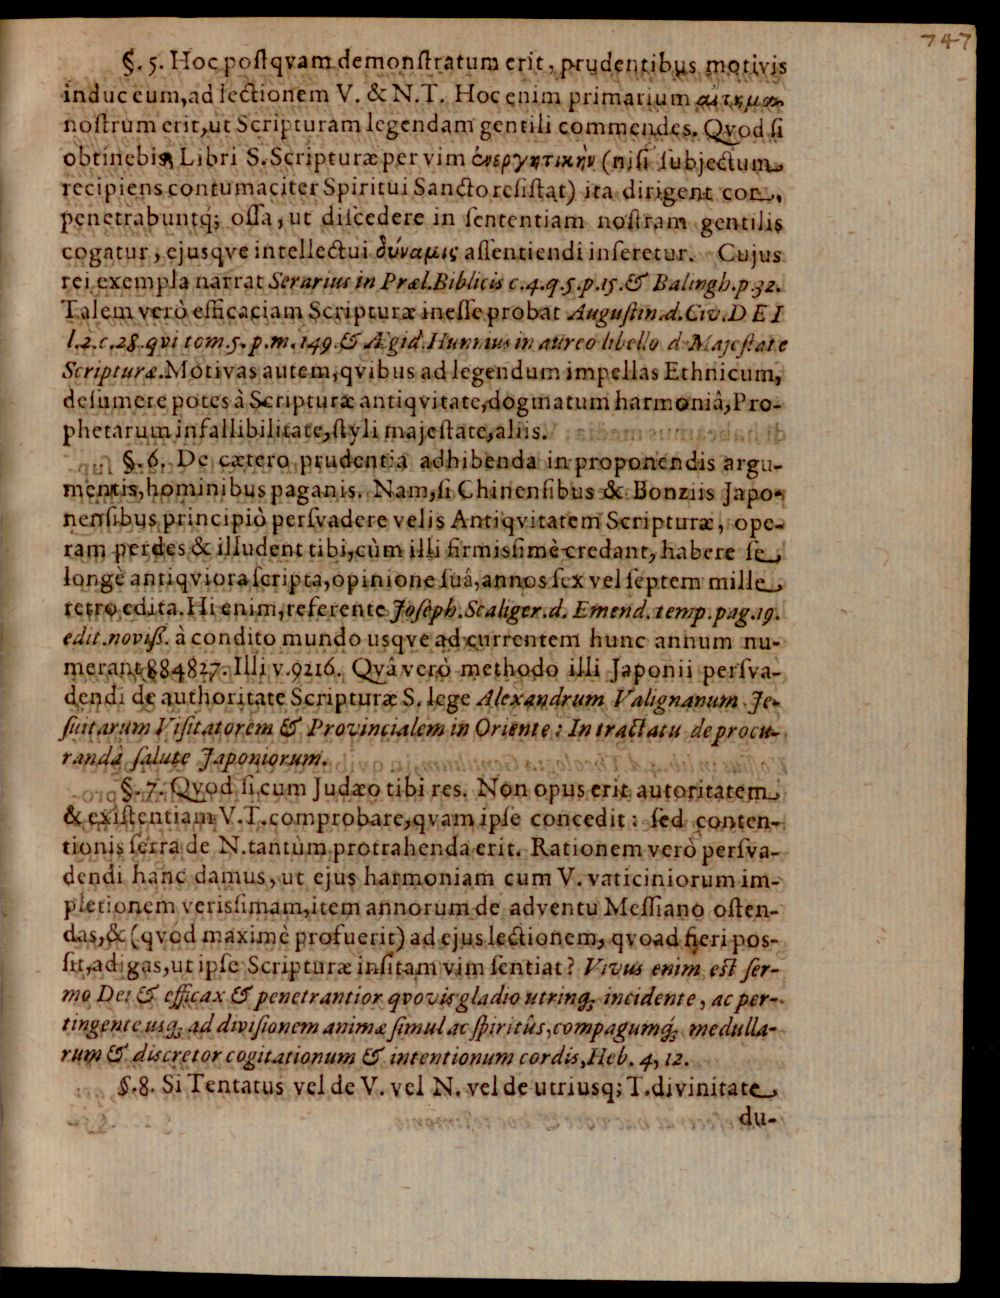 747
§. 5. Hoc poſtqvam demonſtratum erit, prudentibus motivis
induc eum, ad lectionem V. & N.T. Hoc enim primarium
noſtrum erit, ut Scripturam legendam gentili commendes. Qvod ſi
obtinebis, Libri S. Scripturæ per vim ἐνεργητικὴν (niſi ſubjectum
recipiens contumaciter Spiritui Sancto reſiſtat) ita dirigent cor,
penetrabuntq; oſſa, ut diſcedere in ſententiam noſtram gentilis
cogatur, ejusqve intellectui δύναμις aſſentiendi inſeretur. Cujus
rei exempla narrat Serarius in Præl. Biblicis c.4.q.5.p.15.& Balingh.p.32.
Talem verò efficaciam Scripturæ ineſſe probat Auguſtin.d.Civ.DEI
l.2.c.28.qvi tom.5.p.m.149.& Ægid. Hunnius in aureo libello d Majeſtate
Scripturæ. Motivas autem, qvibus ad legendum impellas Ethnicum,
deſumere potes à Scripturæ antiqvitate, dogmatum harmoniâ, Pro-
phetarum infallibilitate, ſtyli majeſtate, aliis.
§. 6. De cætero prudentia adhibenda in proponendis argu-
mentis, hominibus paganis. Nam, ſi Chinenſibus & Bonziis Japo-
nenſibus principiò perſvadere velis Antiqvitatem Scripturæ, ope-
ram perdes & illudent tibi, cùm illi firmisſimè credant, habere ſe
longè antiqviora ſcripta, opinione ſuâ, annos ſex vel ſeptem mille
retro edita. Hi enim, referente Joſeph. Scaliger. d. Emend. temp. pag. 19.
edit. noviſſ. à condito mundo usqve ad currentem hunc annum nu-
merant 884827. Illi v. 9216. Qvâ verò methodo illi Japonii perſva-
dendi de authoritate Scripturæ S. lege Alexandrum Valignanum Je-
ſuitarum Viſitatorem & Provincialem in Oriente: In tractatu de procu-
randâ ſalute Japoniorum.
§. 7. Qvod ſi cum Judæo tibi res. Non opus erit autoritatem
& exiſtentiam V.T. comprobare, qvam ipſe concedit: ſed conten-
tionis ſerra de N. tantùm protrahenda erit. Rationem verò perſva-
dendi hanc damus, ut ejus harmoniam cum V. vaticiniorum im-
pletionem verisſimam, item annorum de adventu Mesſiano oſten-
das, & (qvod maximè profuerit) ad ejus lectionem, qvoad fieri pos-
ſit, adigas, ut ipſe Scripturæ inſitam vim ſentiat? Vivus enim eſt ſer-
mo Dei & efficax & penetrantior qvovis gladio utrinq; incidente, ac per-
tingente usq; ad diviſionem animæ ſimul ac ſpiritûs, compagumq; medulla-
rum & discretor cogitationum & intentionum cordis, Heb. 4, 12.
§. 8. Si Tentatus vel de V. vel N. vel de utriusq; T. divinitate
du-